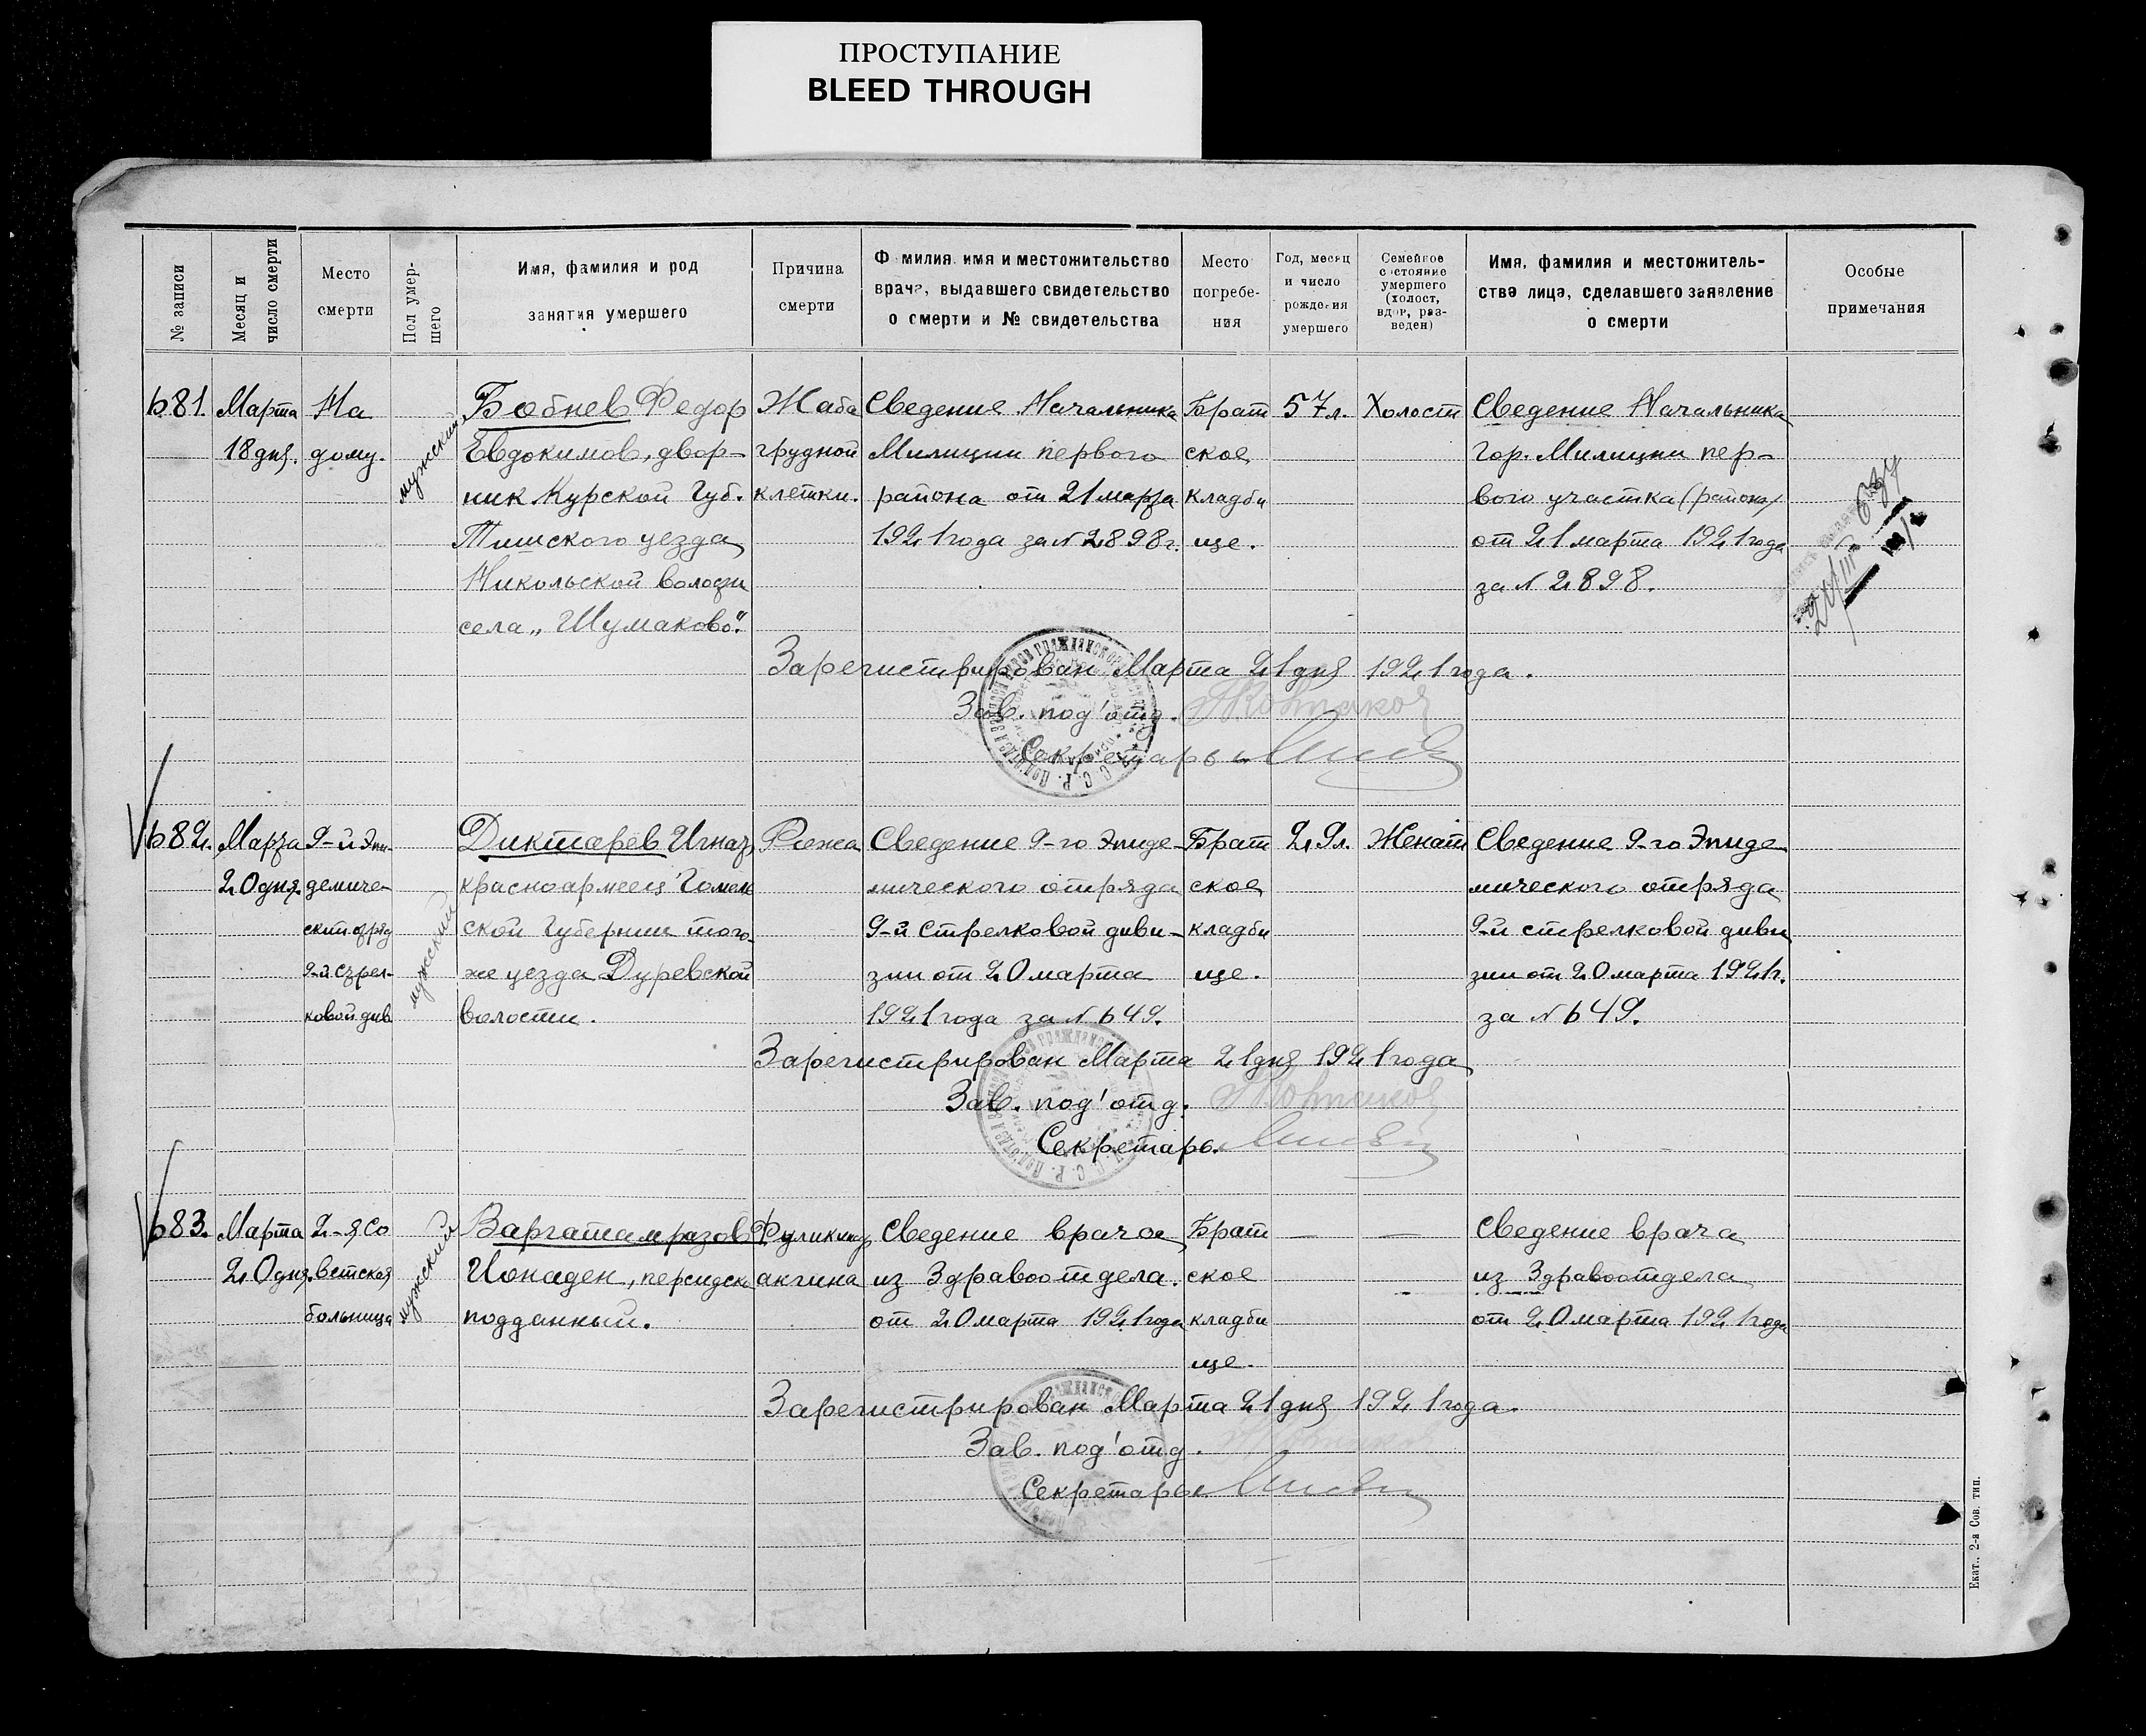 ПРОСТУПАНИЕ
BLEED THROUGH
№ записи
Месяц и число смерти
Место смерти
Пол умершего
Имя, фамилия и род занятия умершего
Причина смерти
Ф милия, имя и местожительство врача, выдавшего свидетельство о смерти и № свидетельства
Место погребения
Год, месяц и число рождения умершего
Семейное состояние умершего (холост, вдов, разведен)
Имя, фамилия и местожительство лица, сделавшего заявление о смерти
Особые примечания
681.
Марта
18 дня.
На
дому.
мужский
Бобнев Федор
Евдокимов, двор-
ник Курской Губ.
Тимского уезда
Никольской волости
села „Шумаково“.
Жаба
грудной
клетки.
Сведение Начальника
Милиции первого
района от 21 марта
1921 года за № 2898г.
Брат
ское
кладби
ще.
57 л.
Холост
Сведение Начальника
Гор. Милиции пер-
вого участка (района)
от 21 марта 1921 года
за № 2898.
Зарегистрирован Марта 21 дня 1921 года.
Зав. под'отд.
Секретарь
682.
Марта
20 дня.
9-й Эпи-
демиче-
ский отряд
9-й стрел-
ковой див
мужский
Диктарев Игнат
красноармеец Гомель
ской Губернии того-
же уезда Дуревской
волости.
Рожа
Сведение 9-го Эпиде-
мического отряда
9-й Стрелковой диви-
зии от 20 марта
1921 года за № 649.
Брат
ское
кладби
ще.
29 л.
Женат
Сведение 9-го Эпиде
мического отряда
9-й стрелковой диви
зии от 20 марта 1921 г.
за № 649.
Зарегистрирован Марта 21 дня 1921 года
Зав. под'отд.
Секретарь.
683.
Марта
20 дня.
2-я Со
ветская
больница
мужский
Варгатамразов
Ионаден, персидск
подданный.
ангина
Сведение врача
из Здравоотдела.
от 20 марта 1921 года
Брат
ское
кладби
ще.
—
—
Сведение врача
из Здравоотдела
от 20 марта 1921 года
Зарегистрирован Марта 21 дня 1921 года.
Зав. под'отд.
Секретарь
Екат., 2-я Сов. тип.